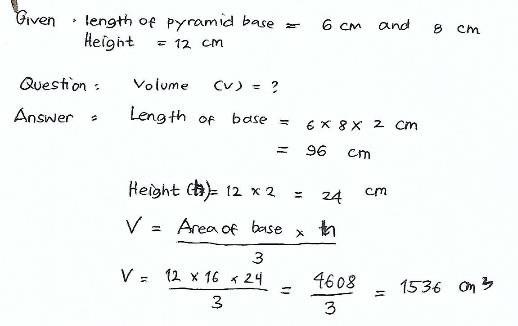 Given : length of pyramid base = 6 cm and 8 cm
Height = 12 cm
Question : Volume (V) = ?
Answer : Length of base = 6 × 8 × 2 cm
= 96 cm
Height (h) = 12 × 2 = 24 cm
V = Area of base × h
3
V = 12 × 16 × 24 = 4608 = 1536 cm 3
3 3